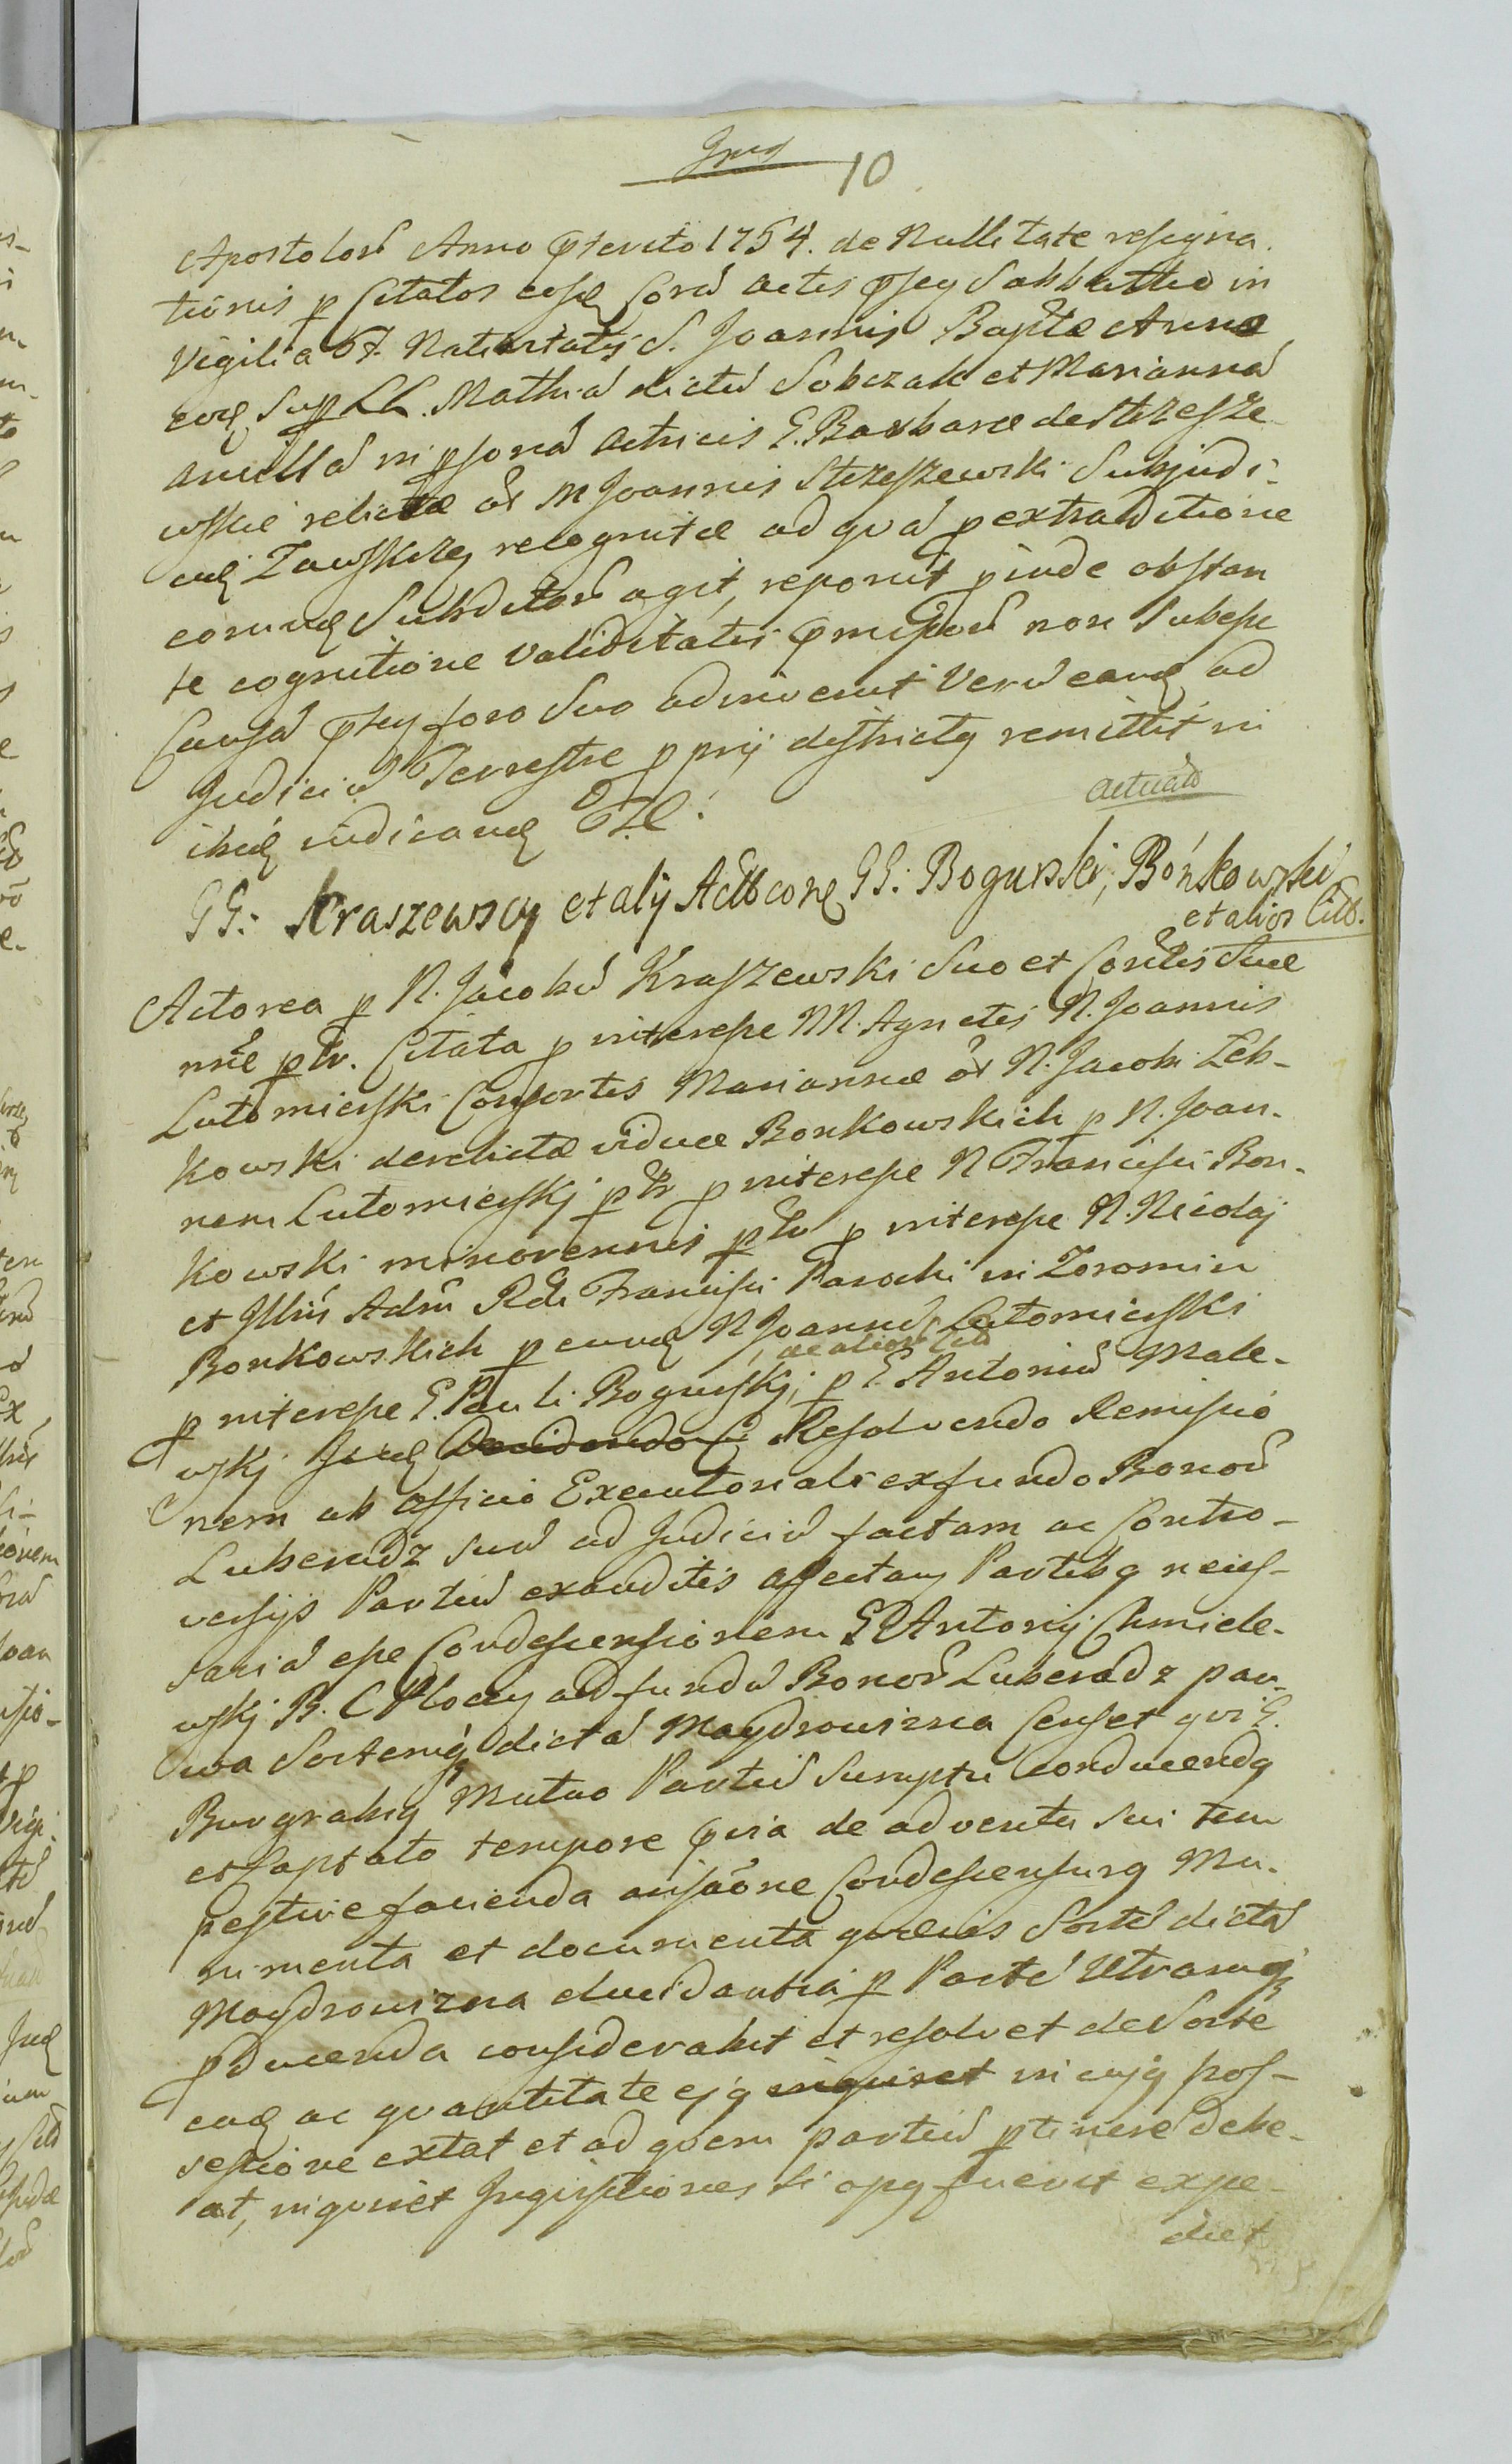 10
Apostolorũ Anno pterito 1754. de Nullitate resigna-
tionis p Citatos eosq Corã actis psey Sabbatho in
Vigilia F. Nativitatis S. Joannis Baptæ Anno
eoq sup LL. Mathiã dictũ Sobczak et Mariannã
ancillã in psonã actricis G. Barbaræ de Strzesze-
wskie relictæ ol M Joannis Strzeszewski Subjudi-
cuq Zawskrzeg recognitæ ad quã p extraditione
eorunq Subditorũ agit, reponit pinde obstan
te cognitione validitatis pmissorũ non Subesse
Causã psey foro Suo adinvenit Verũ eanq ad
Judiciũ Terrestre pprij districtg remittit in
ibiq iudicanq
Actuatũ
GG: Kraszewscy et alij Actt conq GG: Bogurski, Bońkowski
et alios Citt.
Actorea p N. Jacobũ Kraszewski Suo et Consortis Suæ
nne ptr. Citata p interesse NN. Agnetis N. Joannis
Lutomierski Consortis Mariannæ ol N. Jacobi Zeb-
kowski derelictæ viduæ Bonkowskich p N. Joan-
nem Lutomierskj ptr p interesse N Francisci Bon-
kowski minorennis ptr p interesse N. Nicolaj
et Jllris Adm Rdi Francisci Parochi in Zoromin
Bonkowskich p eunq N Joannẽ Lutomierski
ac alios Citt
p interesse G. Pauli Bogurskj, p G Antoniũ Male-
wskj Resolvendo Remissio
nem ab officio Executoriali ex fundo Bonorũ
Luberadz suũ ad Judiciũ factam ac Contro-
versijs Partiũ exauditis affectans Partibg neces-
sariã esse Condescensionem G Antonij Chmiele-
wskj B. C Plocey ad fundũ Bonorũ Luberadz par-
va Sortemq dictã Maydrowizna Censet qvi G.
Burgrabig Mutuo Partiũ Sumptu Conducendg
et Captato tempore pvia de adventu sui tem
pestive facienda avisaõne Condescensurg Mu-
nimenta et documenta qvævis Sortẽ dictã
Maydrowizna elucidantia p Partẽ Utramq
pducenda considerabit et resolvet de Sorte
eaq ac qvantitate ejg inquiret in cujg pos-
sessione extat et ad qvem partiũ ptinere debe-
at, inquiret Jnquisitiones si opg fuerit expe-
diet